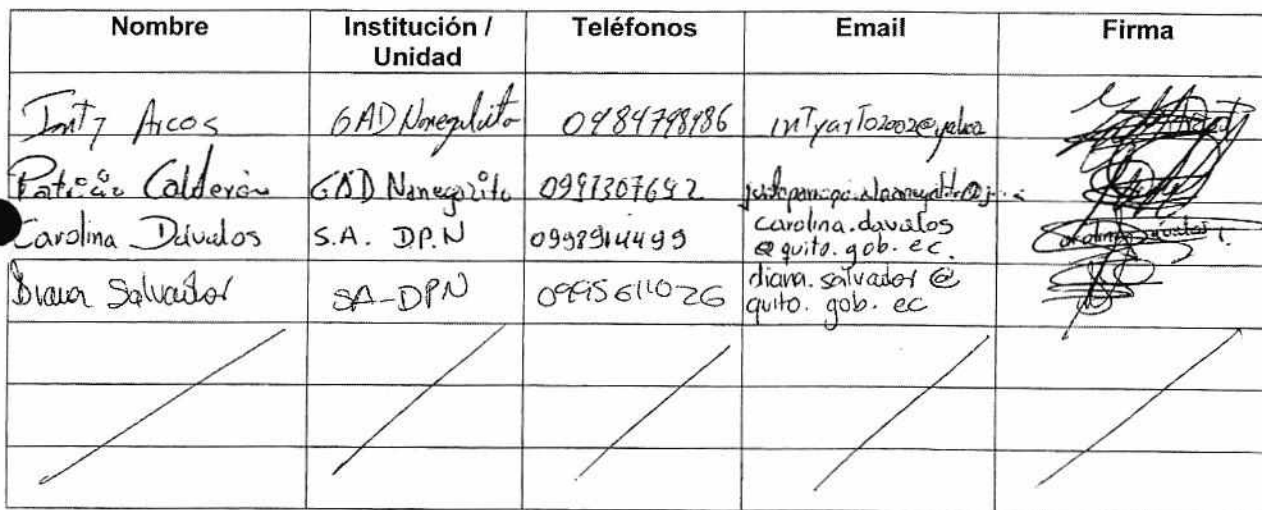 Nombre Institución / Unidad Teléfonos Email Firma
Inty Arcos GAD Nanegalito 0984798986 intyarto2002@yahoo
Patricio Calderón GAD Nanegalito 0997307692
Carolina Dávalos S.A. DP.N 0998914499 carolina.davalos
@quito.gob.ec.
Diana Salvador SA-DPN 0995611026 diana.salvador @
quito.gob.ec